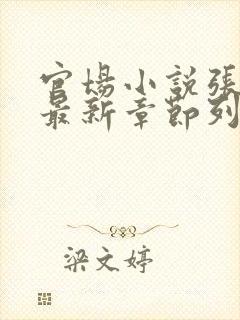 官場小説張
最新章節列
梁文婷